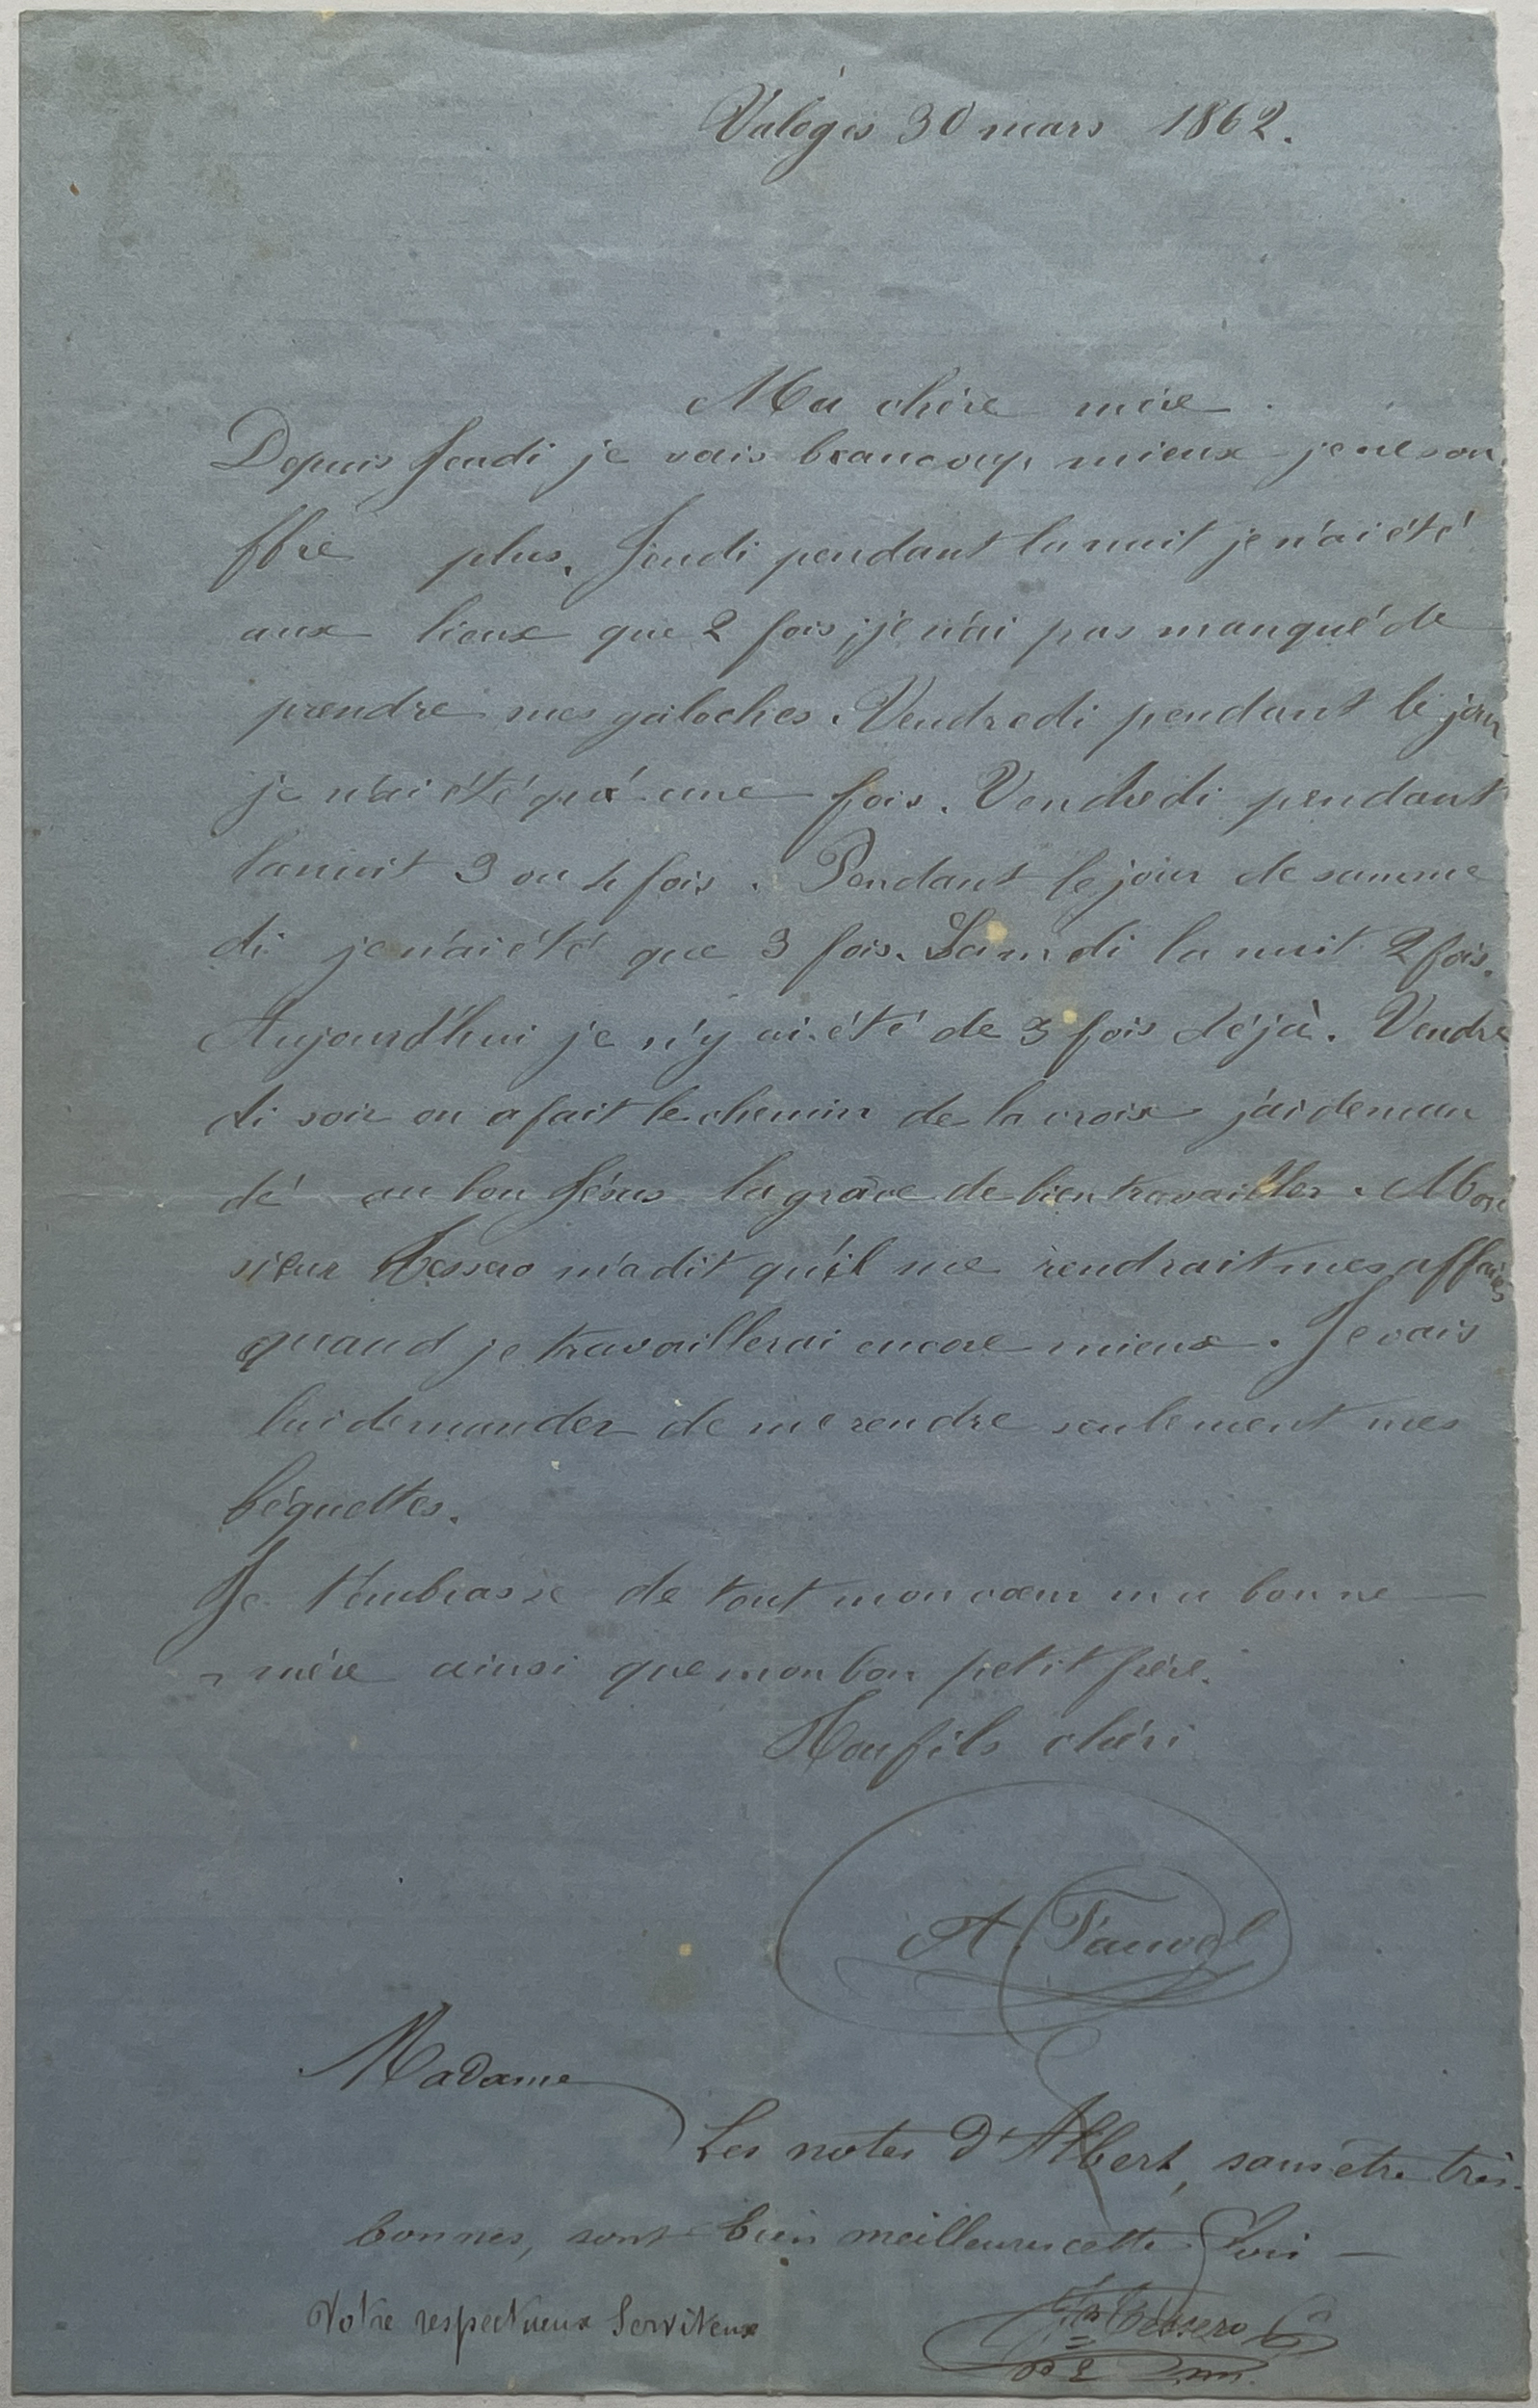 Valogis 30 mars 1862.
Ma chère mère.
Depuis Jeudi je vais beaucoup mieux je ne sou
ffre plus. Jeudi pendant la nuit je n'ai été
aux lieux que 2 fois, je n'ai pas manqué de
prendre mes galoches. Vendredi pendant le jour
je n'ai été qu'une fois. Vendredi pendant
la nuit 3 ou 4 fois. Pendant le jour de samme
di je n'ai été que 3 fois. Samdi la nuit 2 fois.
Aujourd'hui je n'y ai été de 3 fois déjà. Vendre
di soir on a fait le chemin de la croix j'ai deman
dé au bon Jésus la grâce de bien travailler. Mon
sieur Tessero m'a dit qu'il me rendrait mes affaires
quand je travaillerai encore mieux. Je vais
lui demander de me rendre seulement mes
béquettes.
Je t'embrasse de tout mon cœur ma bonne
mère ainsi que mon bon petit frère.
Ton fils chéri
A. Fauvel
Madame
Les notes d'Albert, sans être très-
bonnes, sont bien meilleures cette fois —
Votre respectueux Serviteur
Tessero